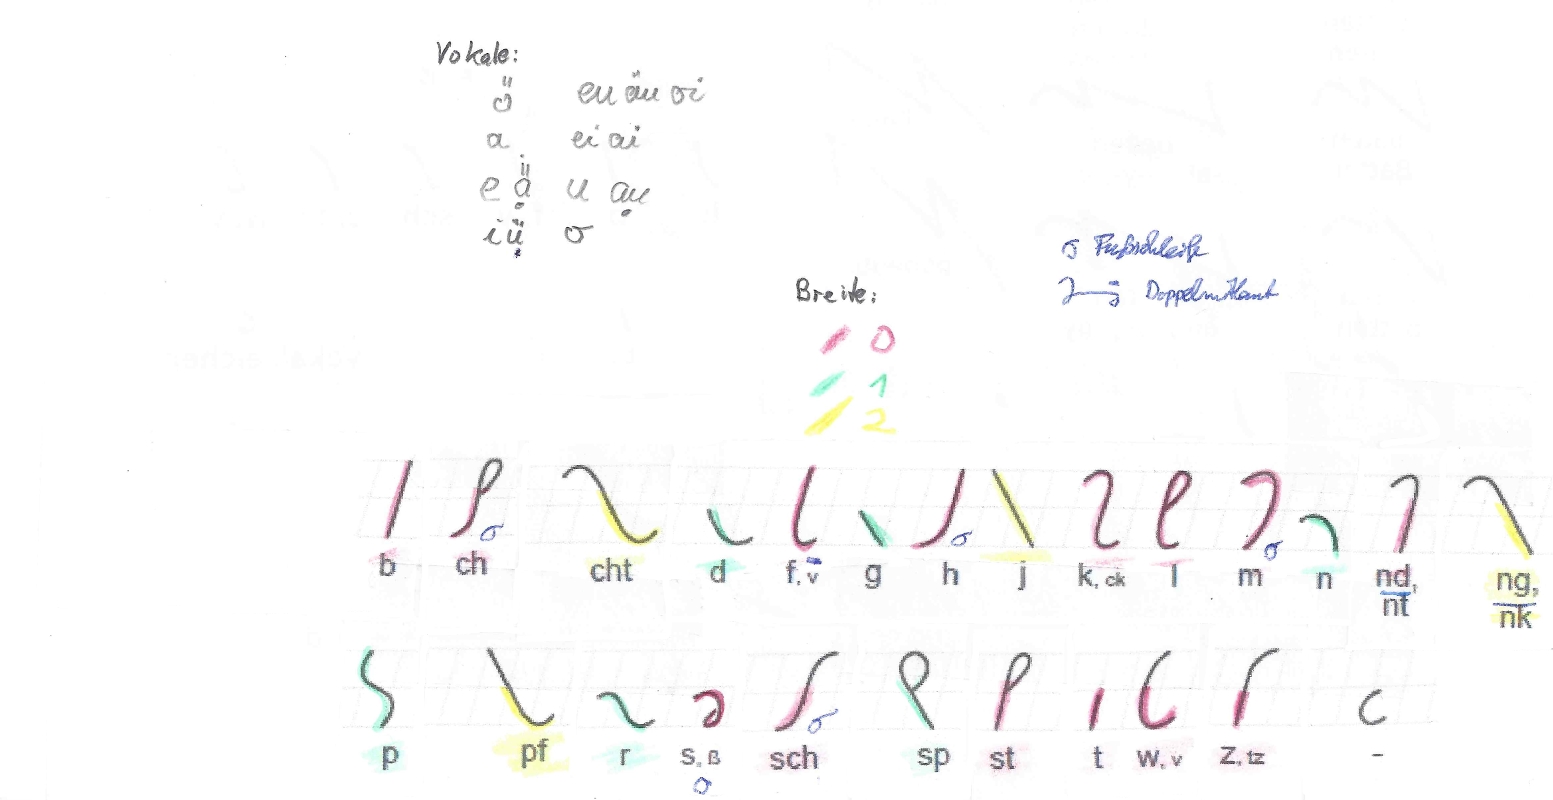 Vokale:
ö eu äu oi
a ei ai
e ä u au
i ü o
Fußschleife
Doppelmitlaut
Breite:
0
1
2
b ch cht d f, v g h j k, ck l m n nd, nt ng, nk
p pf r s, ß sch sp st t w, v z, tz -